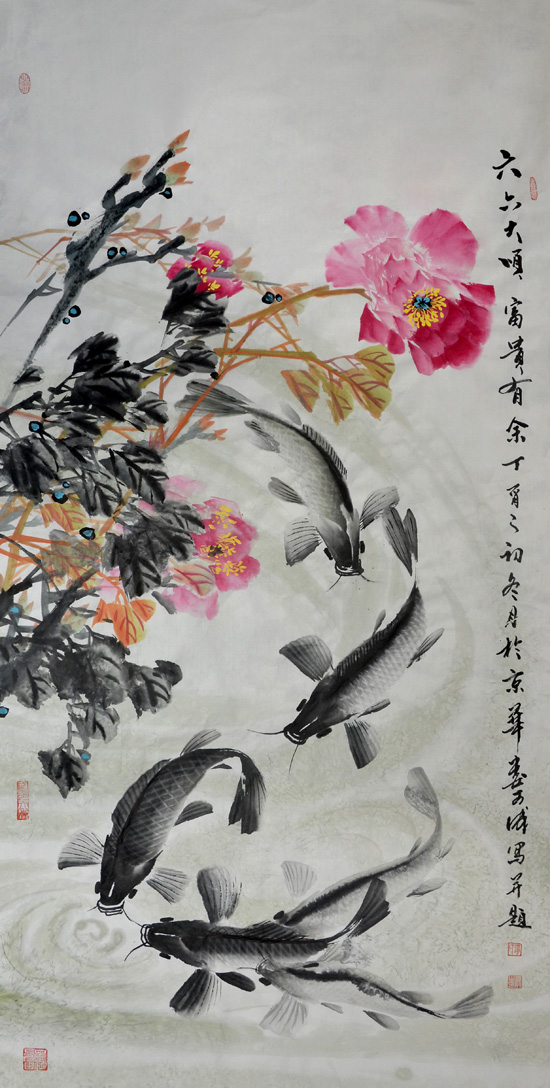 六六大顺富貴有余丁酉之初冬月於京華娄不峰寫并題